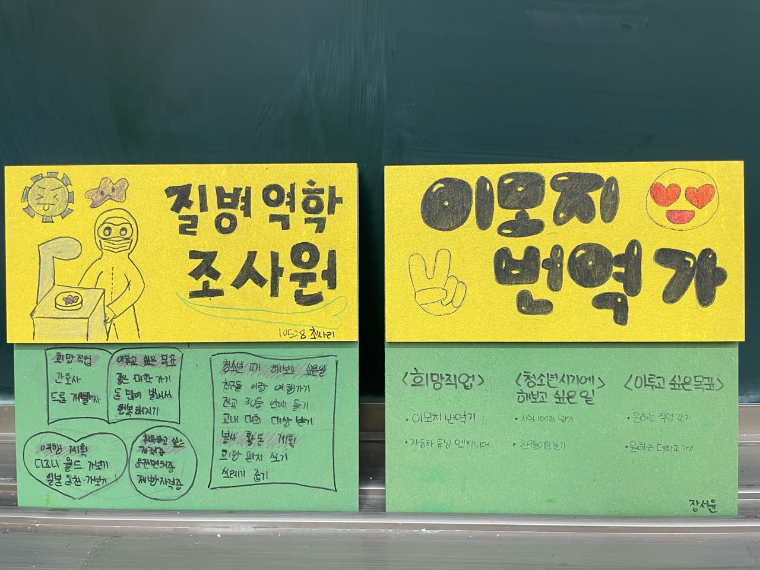 질병 역학
조사원
10528 최사리
희망직업
간호사
드론 개발자
이루고 싶은 목표
좋은 대학 가기
돈 많이 벌어서
행복해지기
여행 계획
디즈니 월드 가보기
일본 온천 가보기
취득하고 싶은
자격증
운전면허증
제빵 자격증
청소년 때 해보고 싶은일
친구들 이랑 여행가기
전교 30등 안에 들기
교내 대회 대상 받기
봉사 활동 계획
편지 쓰기
쓰레기 줍기
이모지
번역가
<희망직업>
• 이모지 번역가
• 자동차 튜닝 엔지니어
<청소년시기에
해보고 싶은 일
• 시험 100점 맞기
<이루고 싶은목표>
• 원하는 직업 갖기
• 원하는 대학교 가기
장서윤